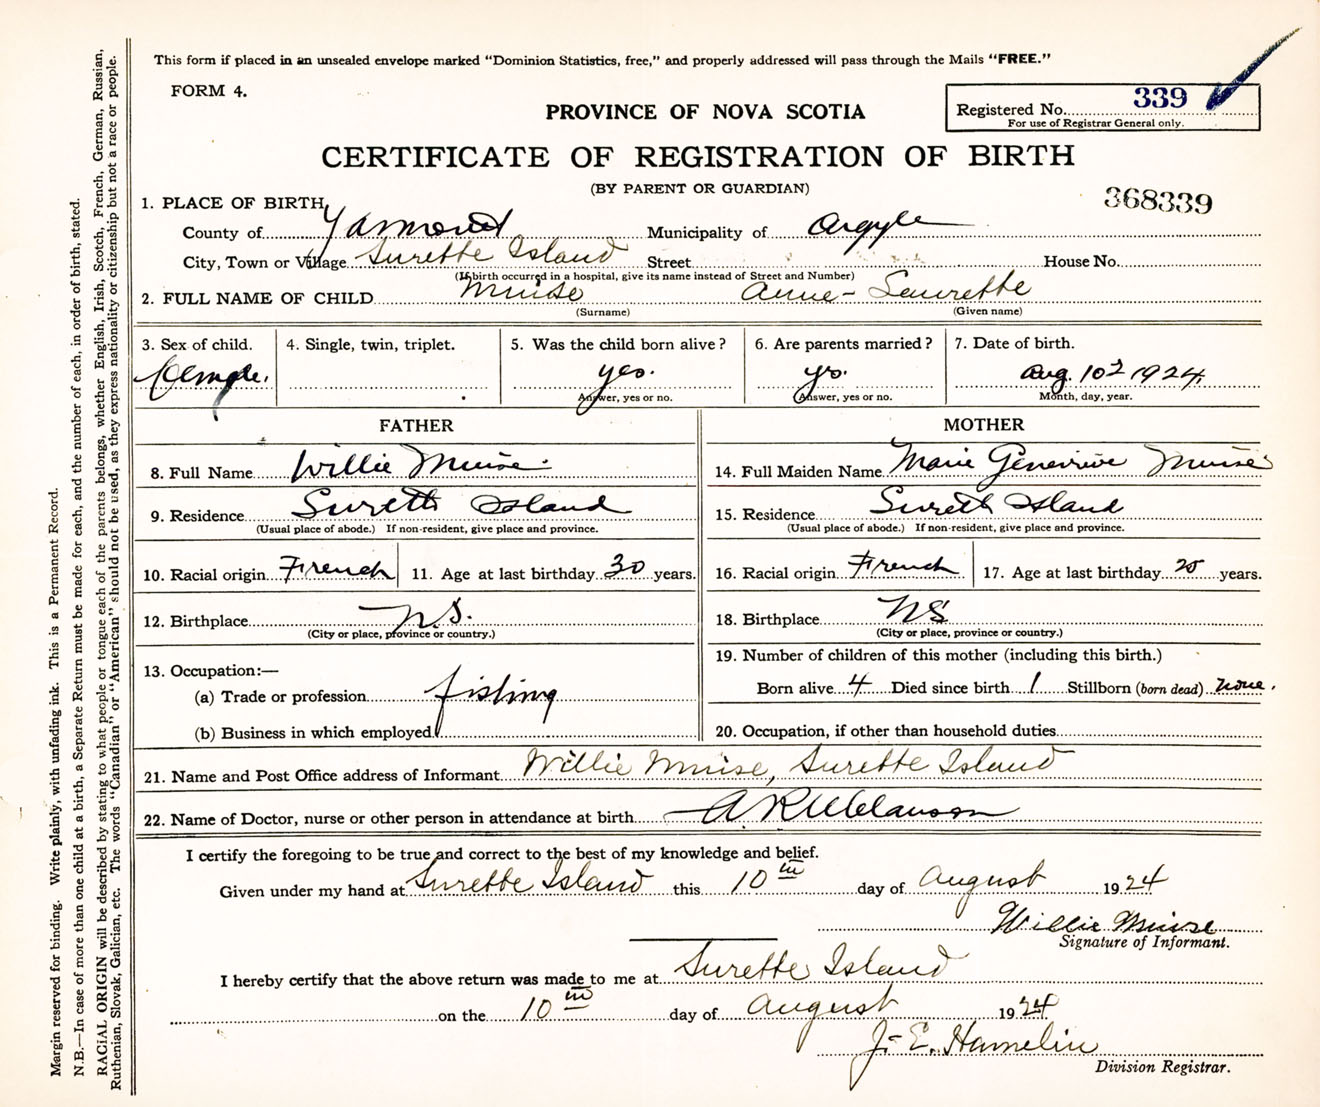 This form if placed in an unsealed envelope marked "Dominion Statistics, free," and properly addressed will pass through the Mails "FREE."
FORM 4.
Registered No. 339
For use of Registrar General only.
PROVINCE OF NOVA SCOTIA
CERTIFICATE OF REGISTRATION OF BIRTH
(BY PARENT OR GUARDIAN)
368339
1. PLACE OF BIRTH
County of Yarmouth Municipality of Argyle
City, Town or Village Surette Island Street House No.
(If birth occurred in a hospital, give its name instead of Street and Number)
2. FULL NAME OF CHILD Muise Anne-Laurette
(Surname) (Given name)
3. Sex of child. 4. Single, twin, triplet. 5. Was the child born alive? 6. Are parents married? 7. Date of birth.
Female. yes. ys. Aug. 10 1924
Answer, yes or no. (Answer, yes or no. Month, day, year.
FATHER MOTHER
8. Full Name Willie Muise 14. Full Maiden Name Marie Genevieve Muise
9. Residence Surett Island 15. Residence Surett Island
(Usual place of abode.) If non-resident, give place and province. (Usual place of abode.) If non-resident, give place and province.
10. Racial origin French 11. Age at last birthday 30 years. 16. Racial origin French 17. Age at last birthday years.
12. Birthplace N.S. 18. Birthplace NS
(City or place, province or country.) (City or place, province or country.)
13. Occupation:— 19. Number of children of this mother (including this birth.)
(a) Trade or profession fishing Born alive 4 Died since birth 1 Stillborn (born dead) none.
(b) Business in which employed 20. Occupation, if other than household duties
21. Name and Post Office address of Informant Willie Muise, Surette Island
22. Name of Doctor, nurse or other person in attendance at birth
I certify the foregoing to be true and correct to the best of my knowledge and belief.
Given under my hand at Surette Island this 10th day of August 1924
Willie Muise
Signature of Informant.
I hereby certify that the above return was made to me at Surette Island
on the 10th day of August 1924
J-E. Hamelin
Division Registrar.
Margin reserved for binding. Write plainly, with unfading ink. This is a Permanent Record.
N.B.—In case of more than one child at a birth, a Separate Return must be made for each, and the number of each, in order of birth, stated.
RACIAL ORIGIN will be described by stating to what people or tongue each of the parents belongs, whether English, Irish, Scotch, French, German, Russian,
Ruthenian, Slovak, Galician, etc. The words "Canadian" or "American" should not be used, as they express nationality or citizenship but not a race or people.